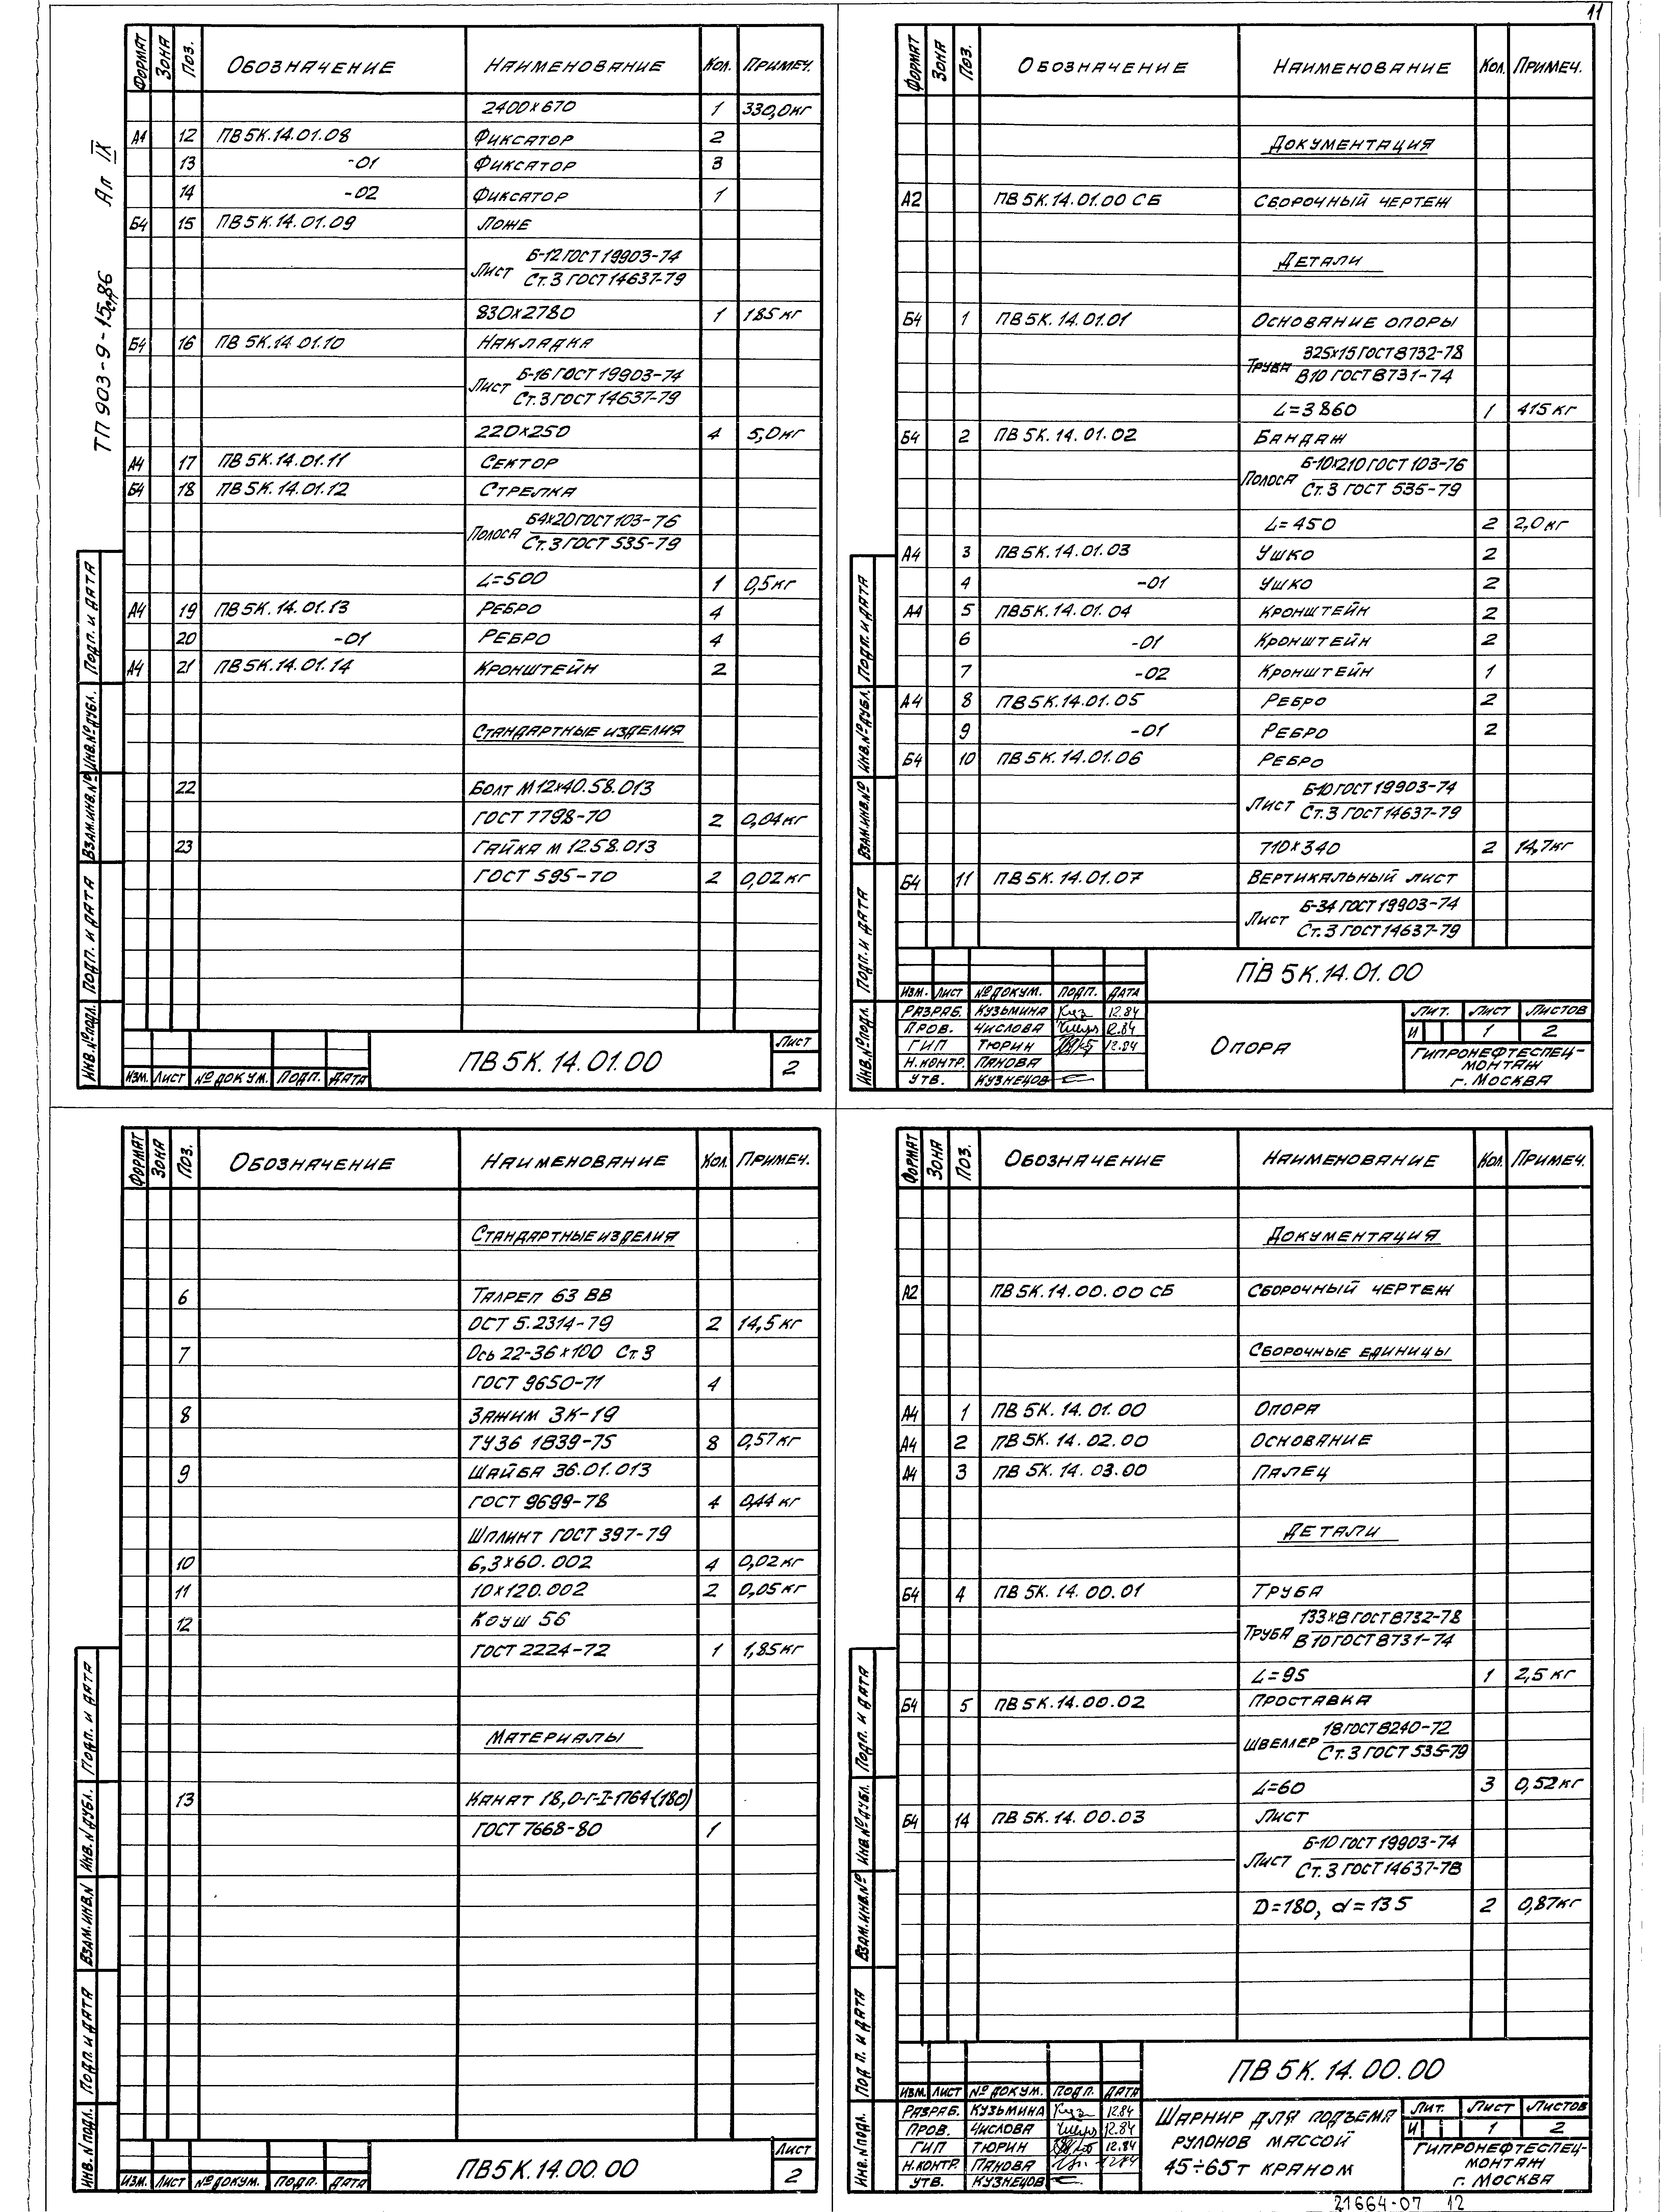 11
ТП 903-9-15с.86 Ал IX
Формат Зона Поз. Обозначение Наименование Кол. Примеч.
2400х670 1 330,0кг
А4 12 ПВ 5К.14.01.08 Фиксатор 2
13 -01 Фиксатор 3
14 -02 Фиксатор 1
Б4 15 ПВ 5К.14.01.09 Ложе
Лист Б-12 ГОСТ 19903-74
Ст.3 ГОСТ 14637-79
830х2780 1 185 кг
Б4 16 ПВ 5К.14.01.10 Накладка
Лист Б-16 ГОСТ 19903-74
Ст.3 ГОСТ 14637-79
220х250 4 5,0кг
А4 17 ПВ 5К.14.01.11 Сектор
Б4 18 ПВ 5К.14.01.12 Стрелка
Полоса Б4х20 ГОСТ 103-76
Ст.3 ГОСТ 535-79
L=500 1 0,5кг
А4 19 ПВ 5К.14.01.13 Ребро 4
20 -01 Ребро 4
А4 21 ПВ 5К.14.01.14 Кронштейн 2
Стандартные изделия
22 Болт М12х40.58.013
ГОСТ 7798-70 2 0,04кг
23 Гайка М 12.58.013
ГОСТ 595-70 2 0,02кг
Инв.№подл. Подп. и дата Взам.инв.№ Инв.№дубл. Подп. и дата
Изм. Лист № докум. Подп. Дата
ПВ 5К.14.01.00
Лист
2
Формат Зона Поз. Обозначение Наименование Кол. Примеч.
Документация
А2 ПВ 5К.14.01.00 СБ Сборочный чертеж
Детали
Б4 1 ПВ 5К.14.01.01 Основание опоры
Труба 325х15 ГОСТ 8732-78
В10 ГОСТ 8731-74
L=3860 1 415 кг
Б4 2 ПВ 5К.14.01.02 Бандаж
Полоса Б-10х210 ГОСТ 103-76
Ст.3 ГОСТ 535-79
L=450 2 2,0кг
А4 3 ПВ 5К.14.01.03 Ушко 2
4 -01 Ушко 2
А4 5 ПВ5К.14.01.04 Кронштейн 2
6 -01 Кронштейн 2
7 -02 Кронштейн 1
А4 8 ПВ5К.14.01.05 Ребро 2
9 -01 Ребро 2
Б4 10 ПВ 5К.14.01.06 Ребро
Лист Б-10 ГОСТ 19903-74
Ст.3 ГОСТ 14637-79
710х340 2 14,7кг
Б4 11 ПВ 5К.14.01.07 Вертикальный лист
Лист Б-34 ГОСТ 19903-74
Ст.3 ГОСТ 14637-79
Инв.№подл. Подп. и дата Взам.инв.№ Инв.№дубл. Подп. и дата
ПВ 5К.14.01.00
Изм. Лист № докум. Подп. Дата
Разраб. Кузьмина 12.84
Пров. Числова 12.84
ГИП Тюрин 12.84
Н.контр. Панова
Утв. Кузнецов
Опора
Лит. Лист Листов
И 1 2
Гипронефтеспец-
монтаж
г. Москва
Формат Зона Поз. Обозначение Наименование Кол. Примеч.
Стандартные изделия
6 Талреп 63 ВВ
ОСТ 5.2314-79 2 14,5 кг
7 Ось 22-36х100 Ст.3
ГОСТ 9650-71 4
8 Зажим ЗК-19
ТУ36 1839-75 8 0,57кг
9 Шайба 36.01.013
ГОСТ 9699-78 4 0,44 кг
Шплинт ГОСТ 397-79
10 6,3х60.002 4 0,02кг
11 10х120.002 2 0,05кг
12 Коуш 56
ГОСТ 2224-72 1 1,85кг
Материалы
13 Канат 18,0-Г-I-1764(180)
ГОСТ 7668-80 1
Инв.№подл. Подп. и дата Взам.инв.№ Инв.№дубл. Подп. и дата
Изм. Лист № докум. Подп. Дата
ПВ5К.14.00.00
Лист
2
Формат Зона Поз. Обозначение Наименование Кол. Примеч.
Документация
А2 ПВ 5К.14.00.00 СБ Сборочный чертеж
Сборочные единицы
А4 1 ПВ 5К.14.01.00 Опора
А4 2 ПВ 5К.14.02.00 Основание
А4 3 ПВ 5К.14.03.00 Палец
Детали
Б4 4 ПВ 5К.14.00.01 Труба
Труба 133х8 ГОСТ 8732-78
В 10 ГОСТ 8731-74
L=95 1 2,5 кг
Б4 5 ПВ 5К.14.00.02 Проставка
Швеллер 18 ГОСТ 8240-72
Ст.3 ГОСТ 535-79
L=60 3 0,52кг
Б4 14 ПВ 5К.14.00.03 Лист
Лист Б-10 ГОСТ 19903-74
Ст.3 ГОСТ 14637-78
D=180, d=135 2 0,87кг
Инв.№подл. Подп. и дата Взам.инв.№ Инв.№дубл. Подп. и дата
ПВ 5К.14.00.00
Изм. Лист № докум. Подп. Дата
Разраб. Кузьмина 12.84
Пров. Числова 12.84
ГИП Тюрин 12.84
Н.контр. Панова 12.84
Утв. Кузнецов
Шарнир для подъема
рулонов массой
45÷65т краном
Лит. Лист Листов
И 1 2
Гипронефтеспец-
монтаж
г. Москва
21664-07 12